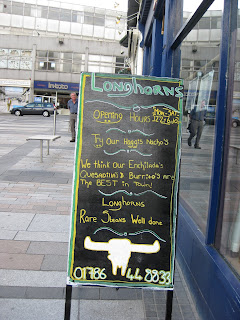 LONGHORNS
Opening Hours
Try Our Haggis Nacho's
We think Our Enchilada's
Quesadilla's & Burrito's are
The BEST in Town!
LONGHORNS
Rare Steaks Well done
01786 44 8833